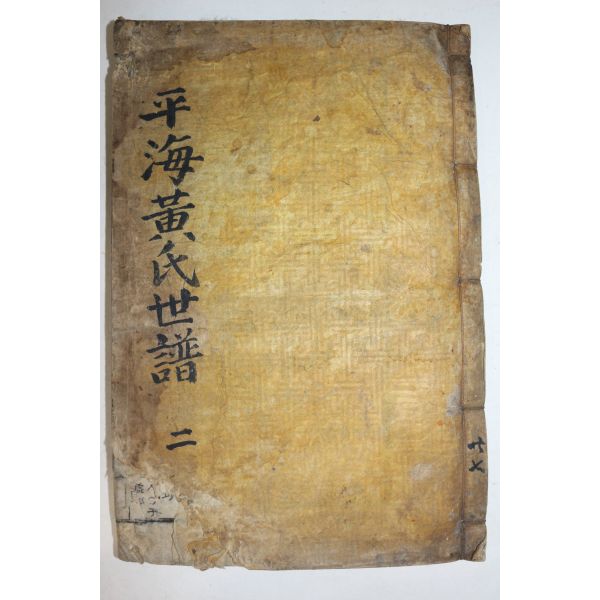 平海黃氏世譜
二